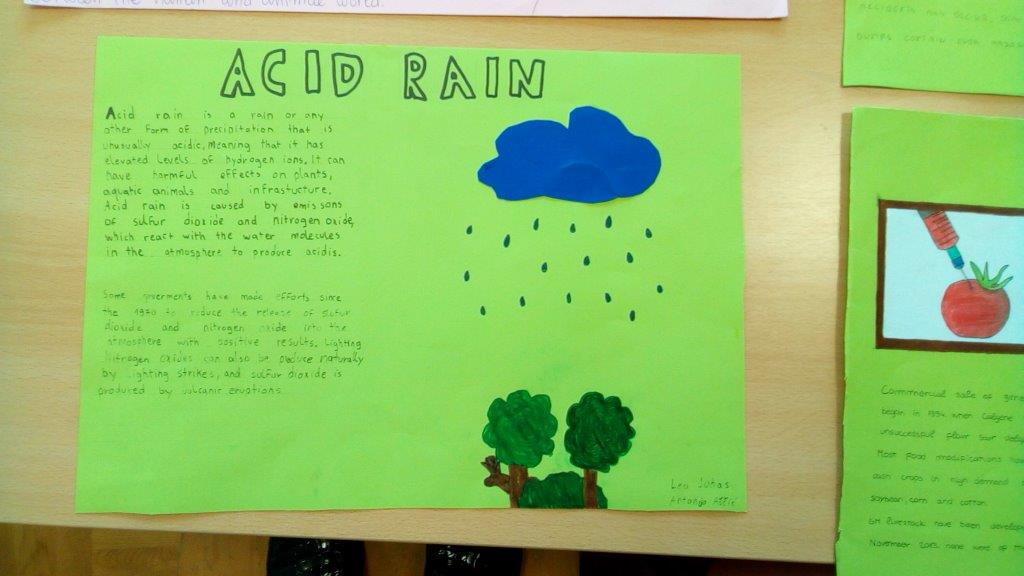 between the human and animal world.
ACID RAIN
Acid rain is a rain or any
other form of precipitation that is
unusually acidic, meaning that it has
elevated levels of hydrogen ions. It can
have harmful effects on plants,
aquatic animals and infrastucture.
Acid rain is caused by emissons
of sulfur dioxide and nitrogen oxide,
which react with the water molecules
in the atmosphere to produce acidis.
Some goverments have made efforts since
the 1970 to reduce the release of sulfur
dioxide and nitrogen oxide into the
atmosphere with positive results. Lighting
Nitrogen oxides can also be produce naturally
by lighting strikes, and sulfur dioxide is
produced by vulcanic eruptions.
Leo Juhas
Antonija
Commercial sale of
began in 1994. when
unsuccessful
Most food modifications
cash crops in high demand
soybean, corn and cotton.
GM livestock have been
November 2013. none were